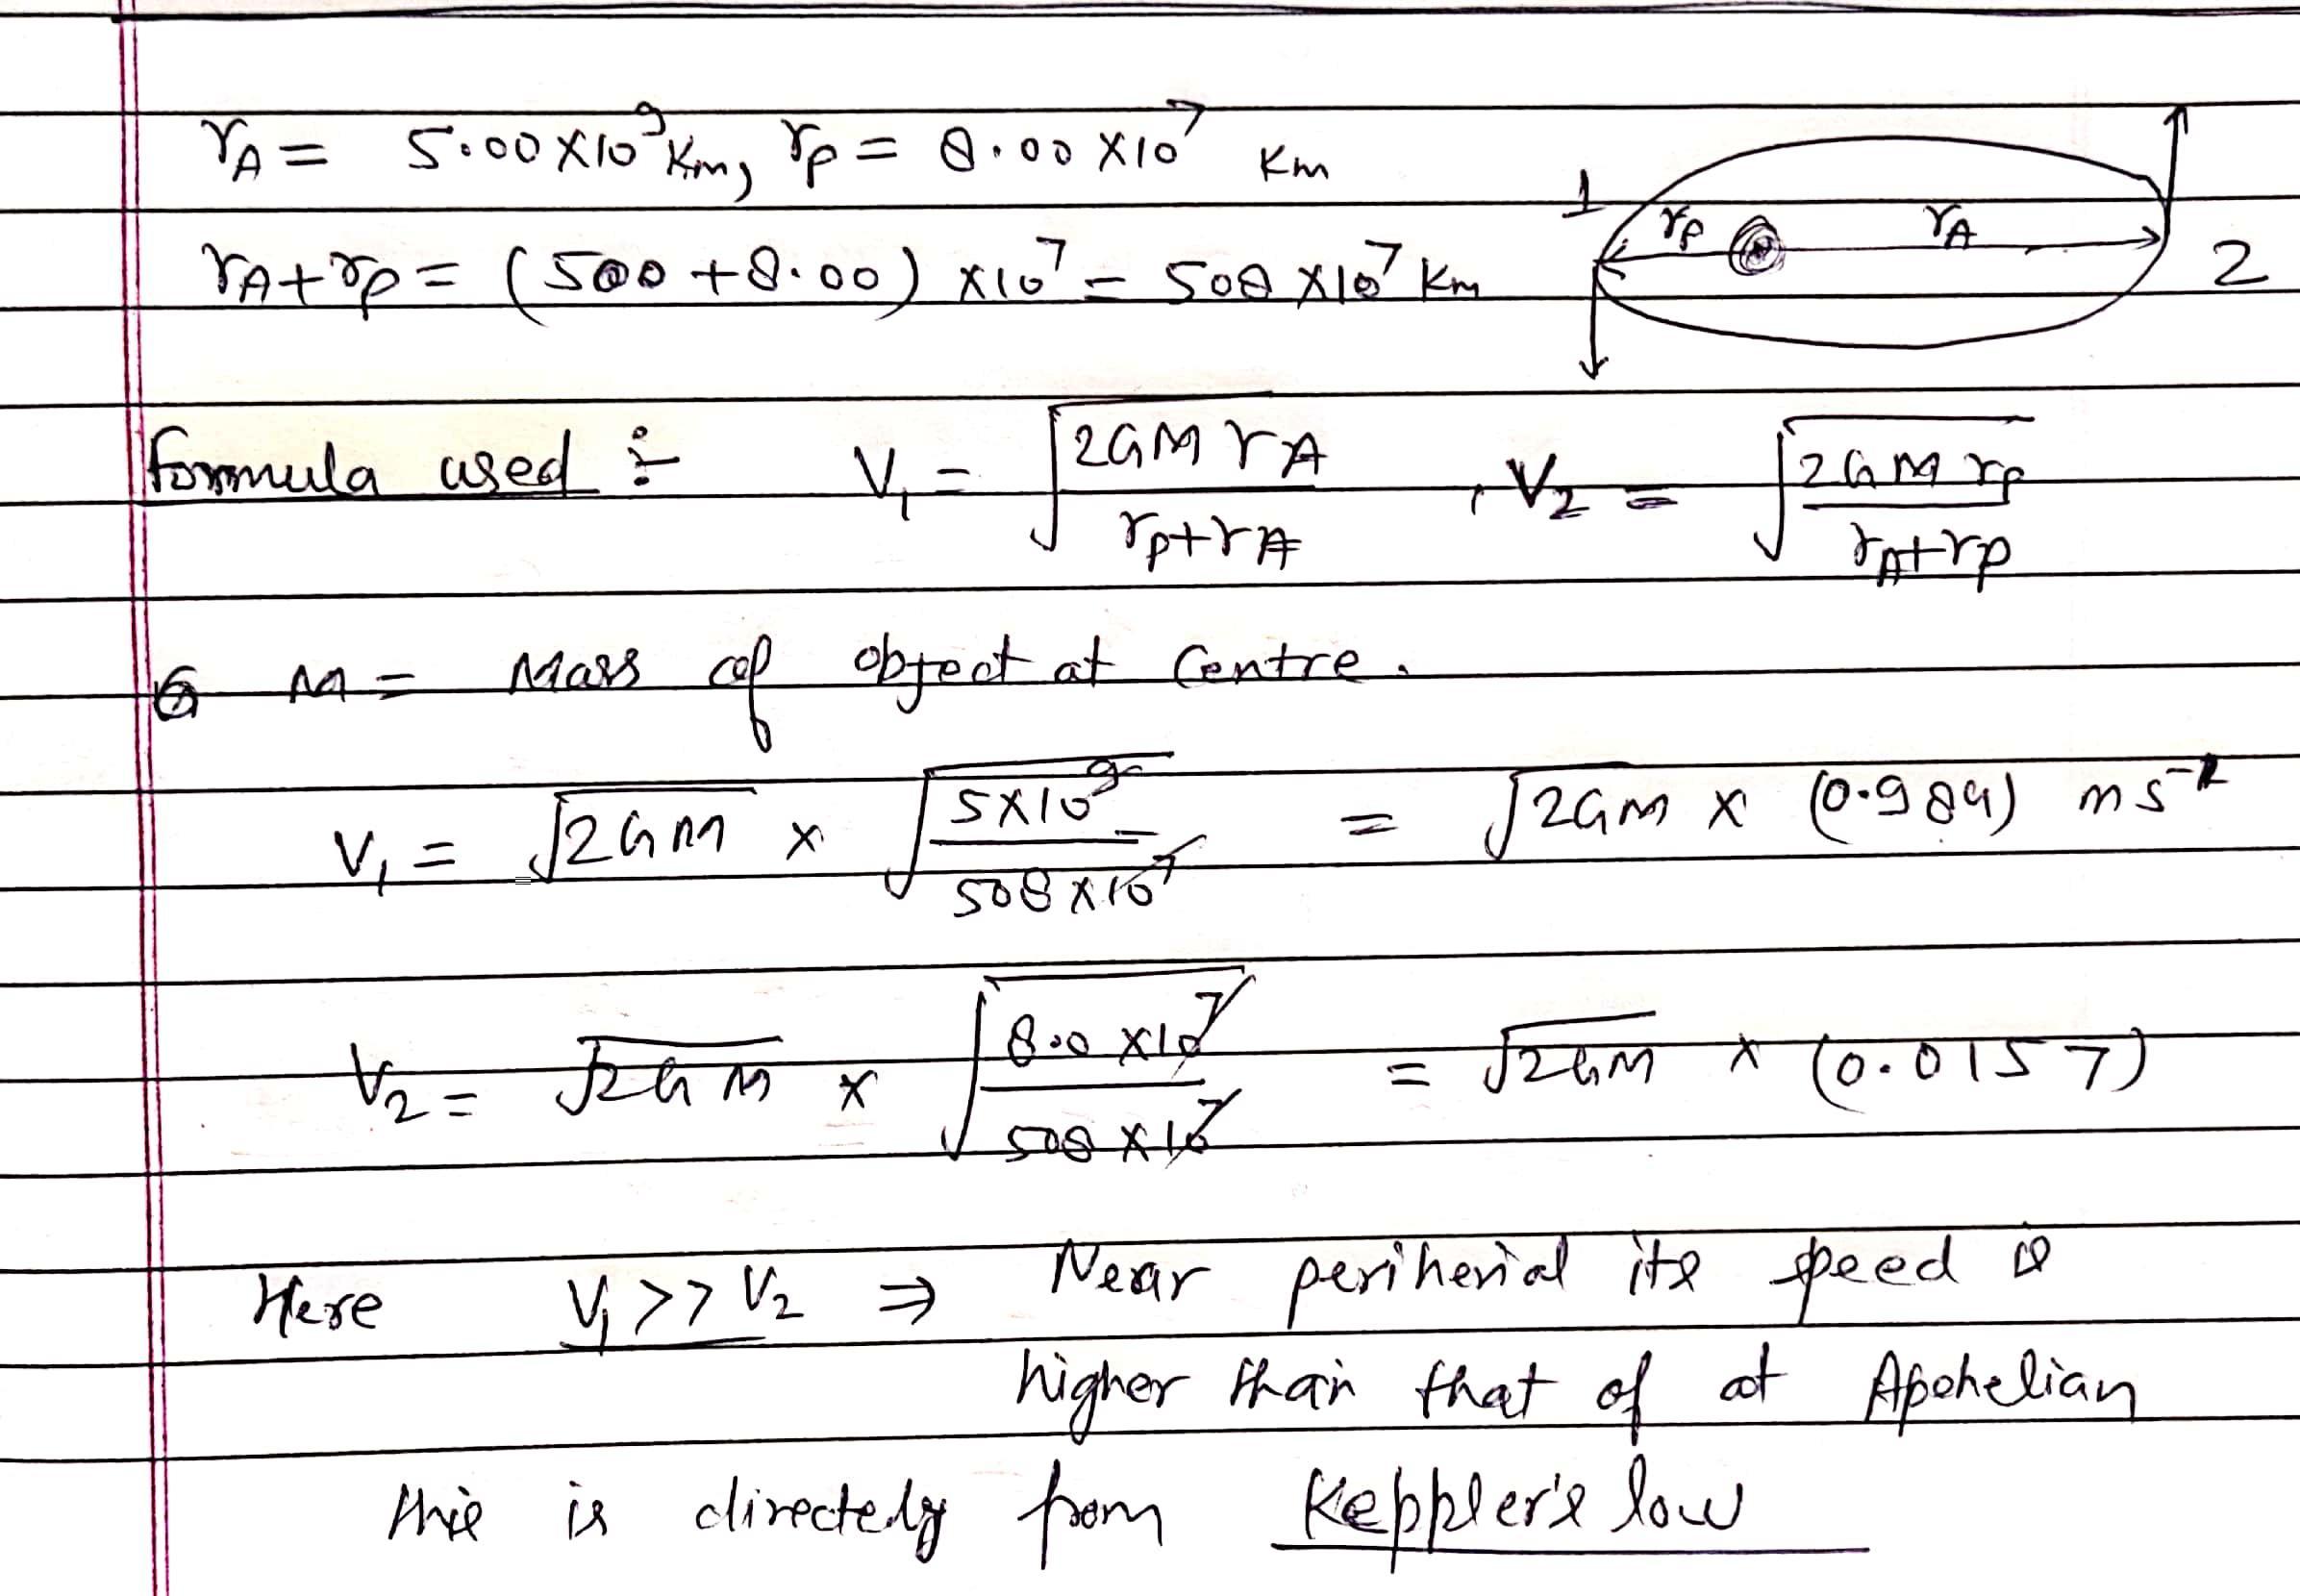 r_A = 5.00 × 10^9 Km, r_p = 8.00 × 10^7 Km
r_A + r_p = (500 + 8.00) × 10^7 = 508 × 10^7 Km
1 r_p r_A 2
formula used :- V_1 = √(2GM r_A / (r_p + r_A)) , V_2 = √(2GM r_p / (r_A + r_p))
M = Mass of object at Centre.
V_1 = √2GM × √(5×10^9 / 508×10^7) = √2GM × (0.984) ms^-1
V_2 = √2GM × √(8.0 ×10^7 / 508 ×10^7) = √2GM × (0.0157)
Here V_1 >> V_2 ⇒ Near periherial its speed is
higher than that of at Apohelian
this is directely from Keppler's low